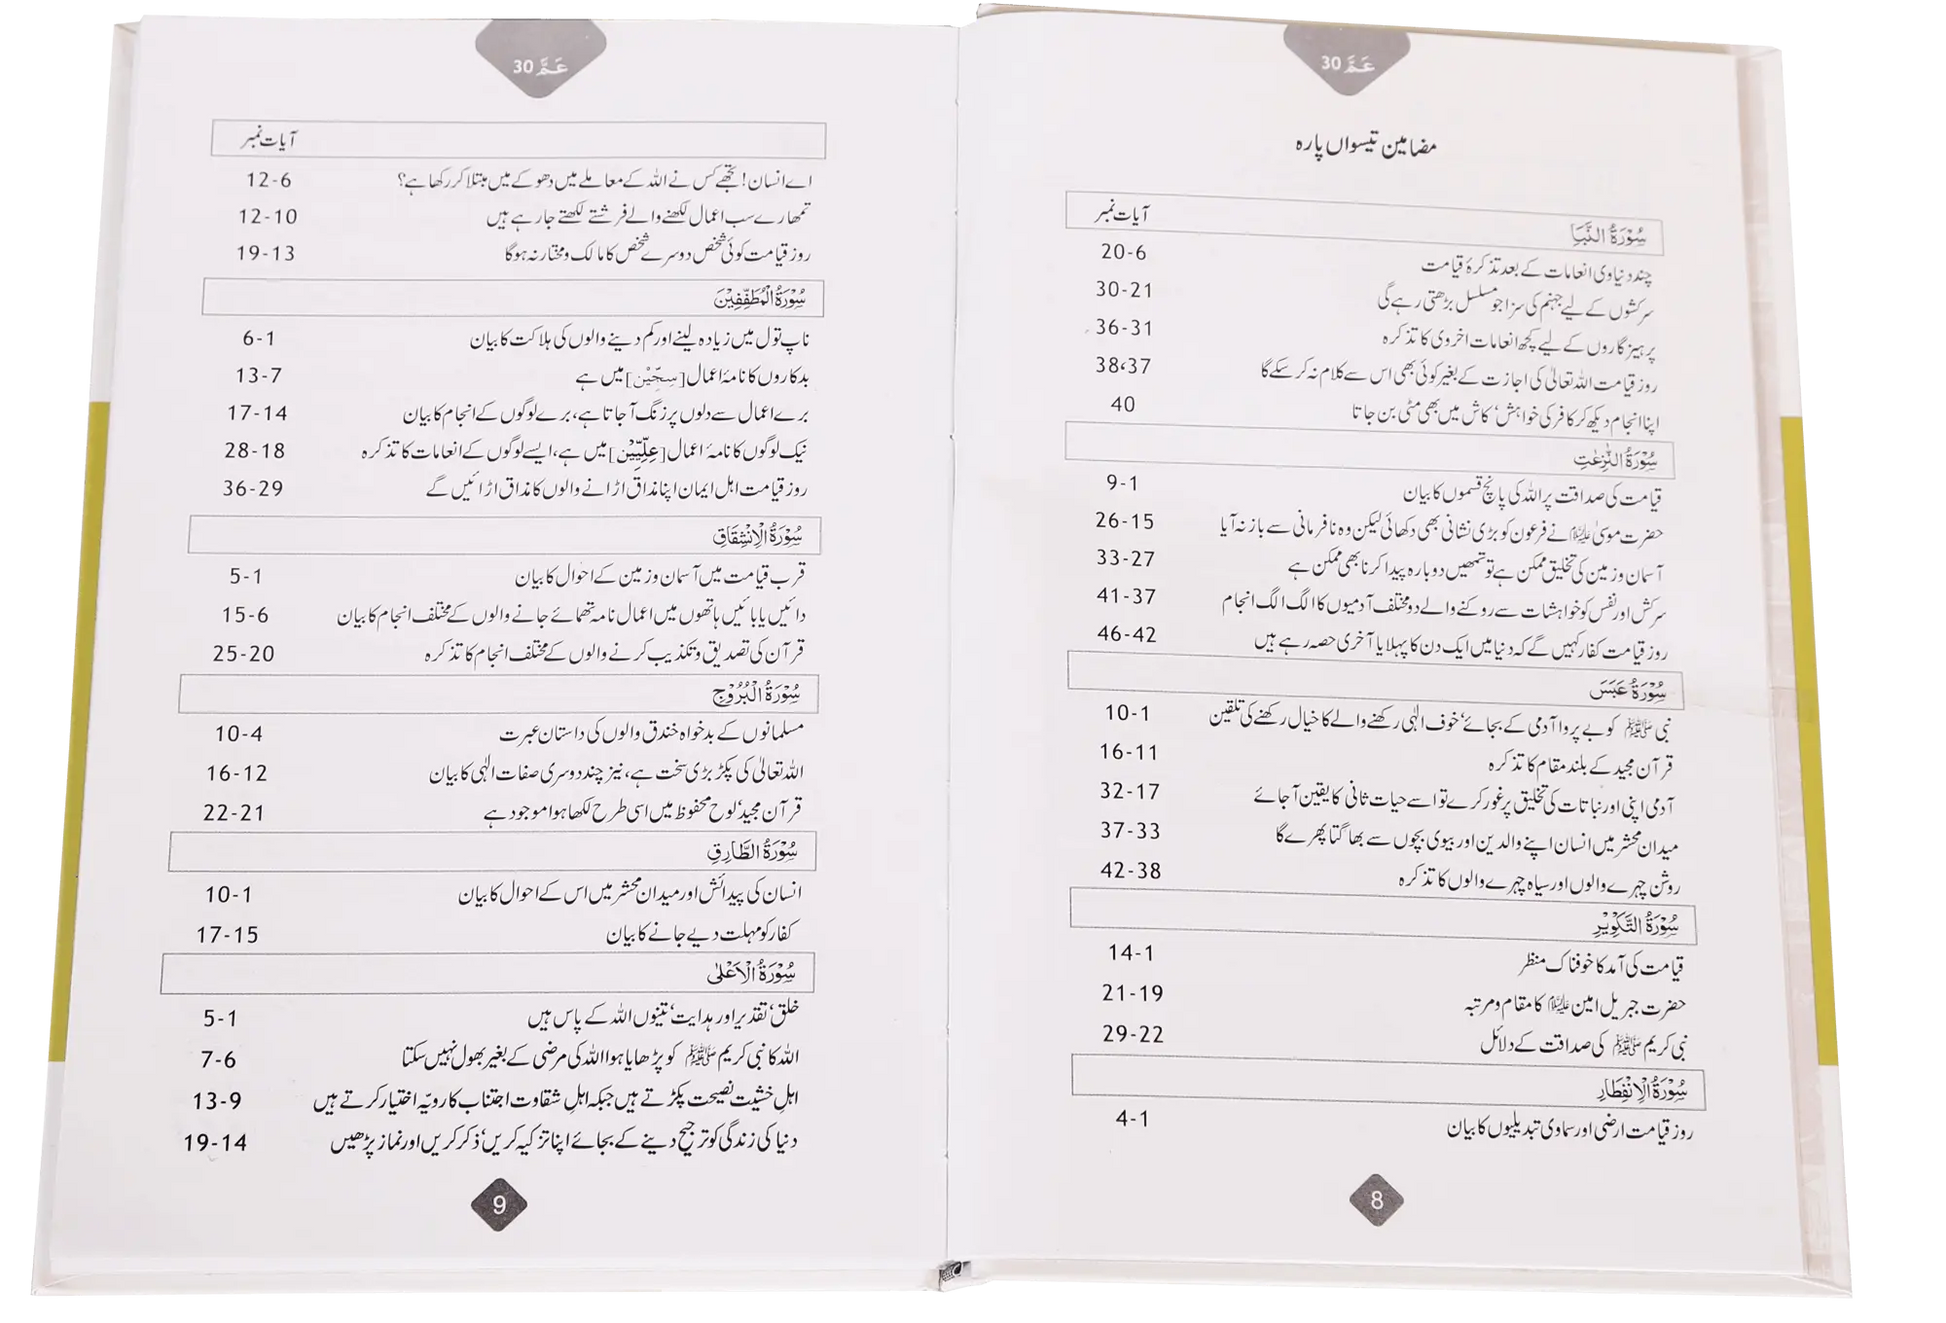 عَمَّ 30
مضامین تیسواں پارہ
آیات نمبر
سُوْرَةُ النَّبَاِ
چند دنیاوی انعامات کے بعد تذکرۂ قیامت 20-6
سرکشوں کے لیے جہنم کی سزا جو مسلسل بڑھتی رہے گی 30-21
پرہیزگاروں کے لیے کچھ انعامات اخروی کا تذکرہ 36-31
روز قیامت اللہ تعالیٰ کی اجازت کے بغیر کوئی بھی اس سے کلام نہ کر سکے گا 38،37
اپنا انجام دیکھ کر کافر کی خواہش' کاش میں بھی مٹی بن جاتا 40
سُوْرَةُ النّٰزِعٰتِ
قیامت کی صداقت پر اللہ کی پانچ قسموں کا بیان 9-1
حضرت موسیٰ علیہ السلام نے فرعون کو بڑی نشانی بھی دکھائی لیکن وہ نافرمانی سے باز نہ آیا 26-15
آسمان وزمین کی تخلیق ممکن ہے تو تمھیں دوبارہ پیدا کرنا بھی ممکن ہے 33-27
سرکش اور نفس کو خواہشات سے روکنے والے دو مختلف آدمیوں کا الگ الگ انجام 41-37
روز قیامت کفار کہیں گے کہ دنیا میں ایک دن کا پہلا یا آخری حصہ رہے ہیں 46-42
سُوْرَةُ عَبَسَ
نبی ﷺ کو بے پروا آدمی کے بجائے' خوف الٰہی رکھنے والے کا خیال رکھنے کی تلقین 10-1
قرآن مجید کے بلند مقام کا تذکرہ 16-11
آدمی اپنی اور نباتات کی تخلیق پر غور کرے تو اسے حیات ثانی کا یقین آ جائے 32-17
میدان محشر میں انسان اپنے والدین اور بیوی بچوں سے بھاگتا پھرے گا 37-33
روشن چہرے والوں اور سیاہ چہرے والوں کا تذکرہ 42-38
سُوْرَةُ التَّكْوِيْرِ
قیامت کی آمد کا خوفناک منظر 14-1
حضرت جبریل امین علیہ السلام کا مقام ومرتبہ 21-19
نبی کریم ﷺ کی صداقت کے دلائل 29-22
سُوْرَةُ الْاِنْفِطَارِ
روز قیامت ارضی اور سماوی تبدیلیوں کا بیان 4-1
8
عَمَّ 30
آیات نمبر
اے انسان! تجھے کس نے اللہ کے معاملے میں دھوکے میں مبتلا کر رکھا ہے؟ 12-6
تمھارے سب اعمال لکھنے والے فرشتے لکھتے جا رہے ہیں 12-10
روز قیامت کوئی شخص دوسرے شخص کا مالک ومختار نہ ہوگا 19-13
سُوْرَةُ الْمُطَفِّفِيْنَ
ناپ تول میں زیادہ لینے اور کم دینے والوں کی ہلاکت کا بیان 6-1
بدکاروں کا نامۂ اعمال [سِجِّيْن] میں ہے 13-7
برے اعمال سے دلوں پر زنگ آ جاتا ہے، برے لوگوں کے انجام کا بیان 17-14
نیک لوگوں کا نامۂ اعمال [عِلِّيِّيْن] میں ہے، ایسے لوگوں کے انعامات کا تذکرہ 28-18
روز قیامت اہل ایمان اپنا مذاق اڑانے والوں کا مذاق اڑائیں گے 36-29
سُوْرَةُ الْاِنْشِقَاقِ
قرب قیامت میں آسمان وزمین کے احوال کا بیان 5-1
دائیں یا بائیں ہاتھوں میں اعمال نامہ تھمائے جانے والوں کے مختلف انجام کا بیان 15-6
قرآن کی تصدیق وتکذیب کرنے والوں کے مختلف انجام کا تذکرہ 25-20
سُوْرَةُ الْبُرُوْجِ
مسلمانوں کے بدخواہ خندق والوں کی داستان عبرت 10-4
اللہ تعالیٰ کی پکڑ بڑی سخت ہے، نیز چند دوسری صفات الٰہی کا بیان 16-12
قرآن مجید' لوح محفوظ میں اسی طرح لکھا ہوا موجود ہے 22-21
سُوْرَةُ الطَّارِقِ
انسان کی پیدائش اور میدان محشر میں اس کے احوال کا بیان 10-1
کفار کو مہلت دیے جانے کا بیان 17-15
سُوْرَةُ الْاَعْلٰى
خلق' تقدیر اور ہدایت' تینوں اللہ کے پاس ہیں 5-1
اللہ کا نبی کریم ﷺ کو پڑھایا ہوا اللہ کی مرضی کے بغیر بھول نہیں سکتا 7-6
اہلِ خشیّت نصیحت پکڑتے ہیں جبکہ اہلِ شقاوت اجتناب کا رویّہ اختیار کرتے ہیں 13-9
دنیا کی زندگی کو ترجیح دینے کے بجائے اپنا تزکیہ کریں' ذکر کریں اور نماز پڑھیں 19-14
9